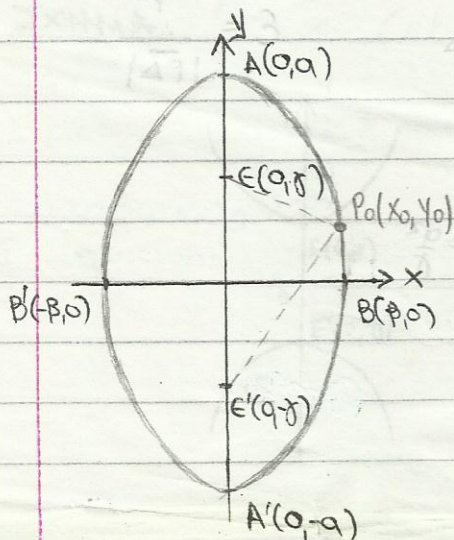 y
A(0,α)
Ε(0,γ)
P₀(x₀,y₀)
x
B'(-β,0)
B(β,0)
Ε'(0,-γ)
A'(0,-α)